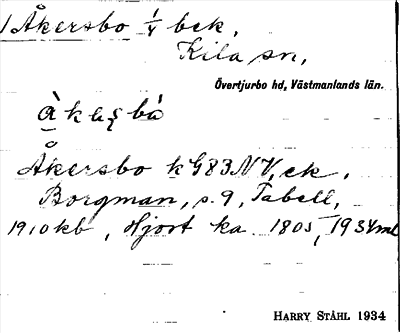 Åkersbo 1/4 bek.
Kila sn,
Övertjurbo hd, Västmanlands län.
Åkersbo k G83NV, ek,
Borgman, s. 9, Tabell,
1910 kb, Hjort ka. 1805, 1934 ml
HARRY STÅHL 1934